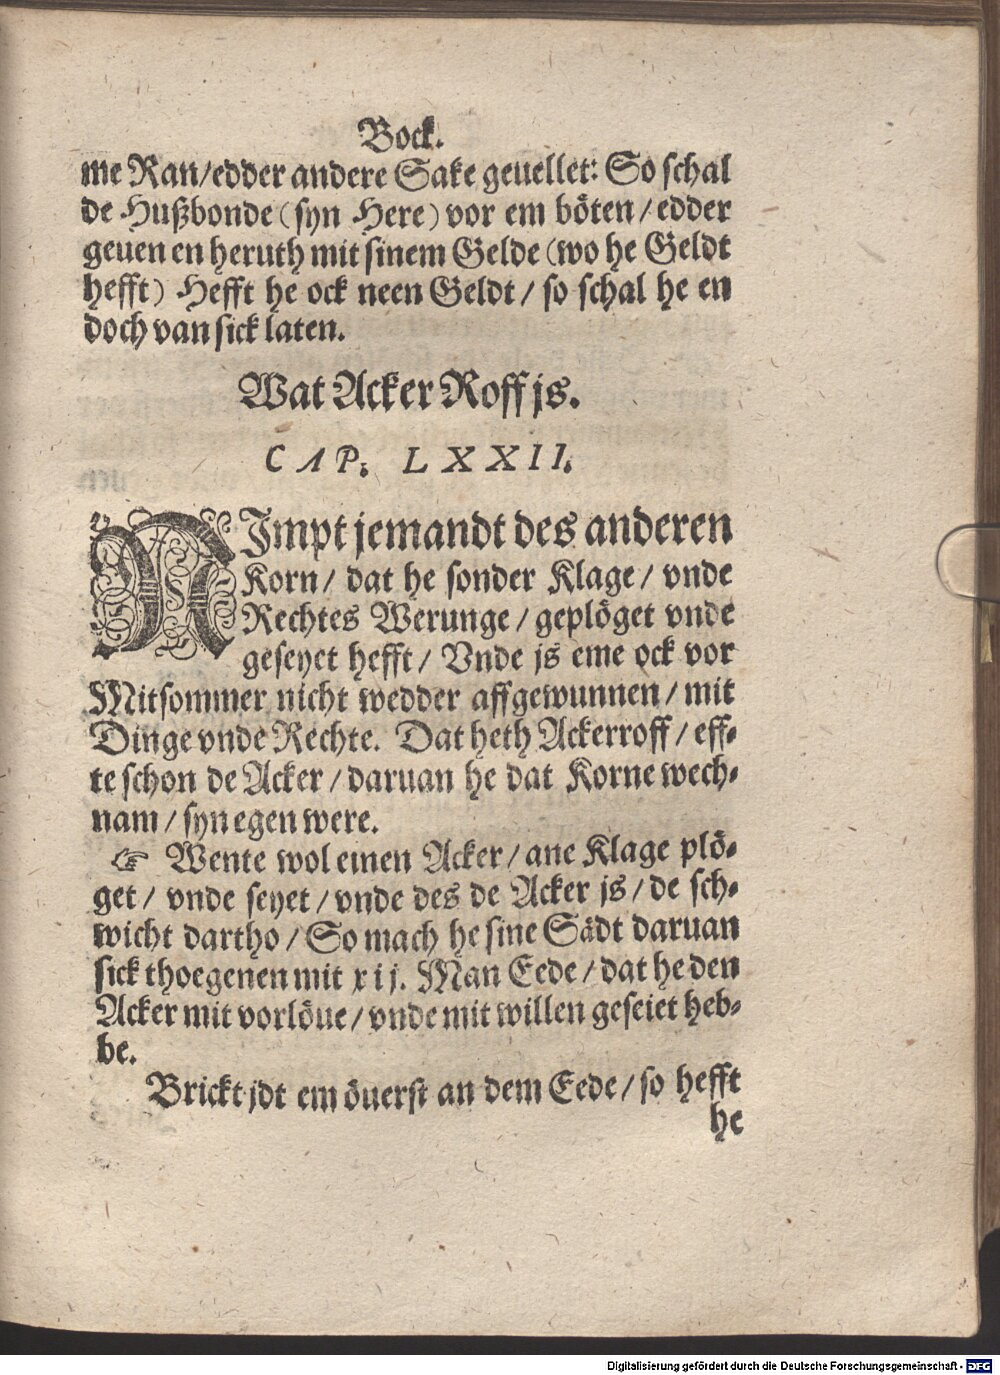 Bock.
me Ran/edder andere Sake geuellet: So schal
de Hußbonde (syn Here) vor em böten / edder
geuen en heruth mit sinem Gelde (wo he Geldt
hefft) Hefft he ock neen Geldt / so schal he en
doch van sick laten.
Wat Acker Roff js.
CAP. LXXII.
NImpt jemandt des anderen
Korn / dat he sonder Klage / vnde
Rechtes Werunge / geplöget vnde
geseyet hefft / Vnde js eme ock vor
Mitsommer nicht wedder affgewunnen / mit
Dinge vnde Rechte. Dat heth Ackerroff / eff-
te schon de Acker / daruan he dat Korne wech-
nam / syn egen were.
☞ Wente wol einen Acker / ane Klage plö-
get / vnde seyet / vnde des de Acker js / de sch-
wicht dartho / So mach he sine Sädt daruan
sick thoegenen mit xij. Man Eede / dat he den
Acker mit vorlöue / vnde mit willen geseiet heb-
be.
Brickt jdt em öuerst an dem Eede / so hefft
he
Digitalisierung gefördert durch die Deutsche Forschungsgemeinschaft - DFG